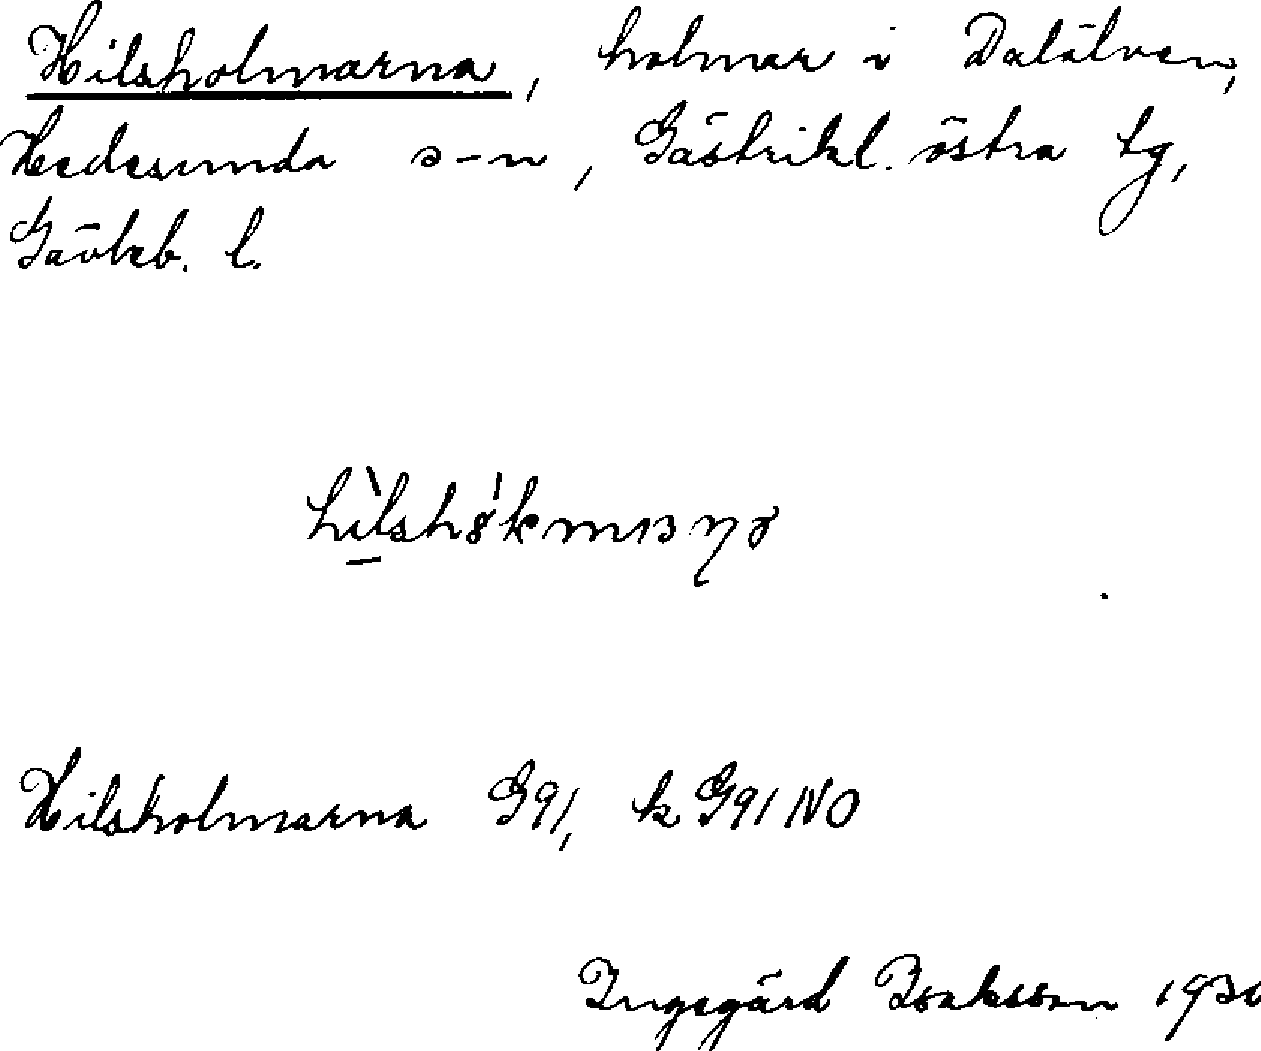 Hilsholmarna, holmar i Dalälven,
Hedesunda s-n, Gästrikl. östra tg,
Gävleb. l.
Hilsholmarna G91, k G91 NO
Ingegärd Isaksson